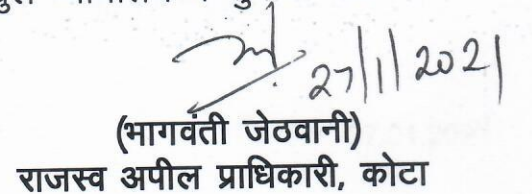 27/1/2021
(भागवंती जेठवानी)
राजस्व अपील प्राधिकारी, कोटा